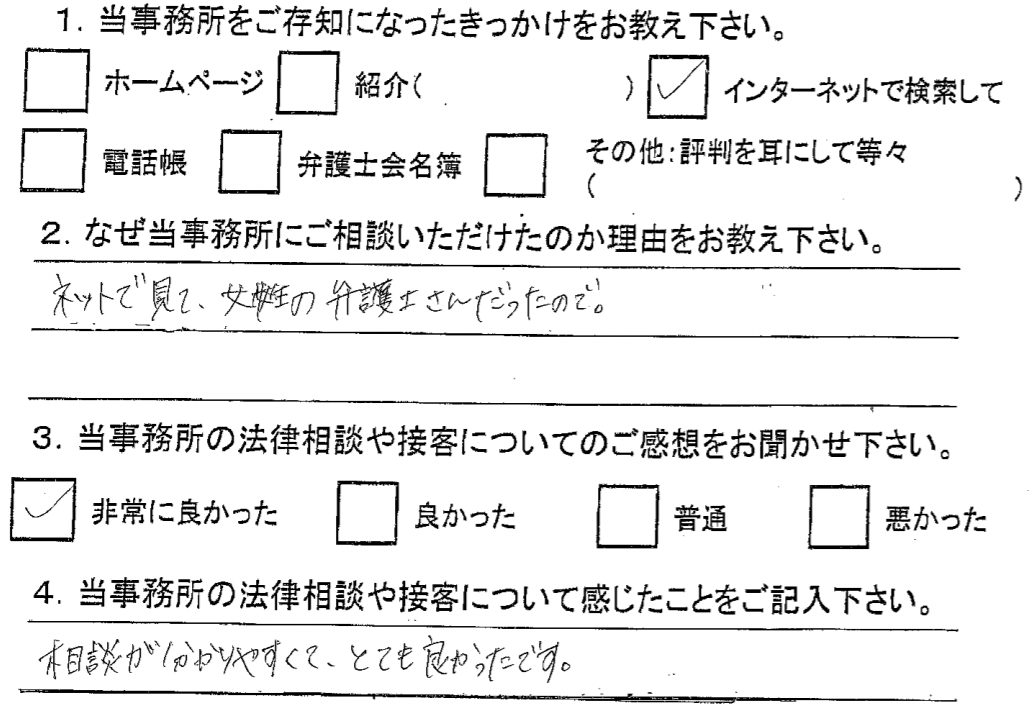 1. 当事務所をご存知になったきっかけをお教え下さい。
ホームページ 紹介( ) ✓ インターネットで検索して
電話帳 弁護士会名簿 その他:評判を耳にして等々
( )
2. なぜ当事務所にご相談いただけたのか理由をお教え下さい。
ネットで見て、女性の弁護士さんだったので。
3. 当事務所の法律相談や接客についてのご感想をお聞かせ下さい。
✓ 非常に良かった 良かった 普通 悪かった
4. 当事務所の法律相談や接客について感じたことをご記入下さい。
相談が分かりやすくて、とても良かったです。